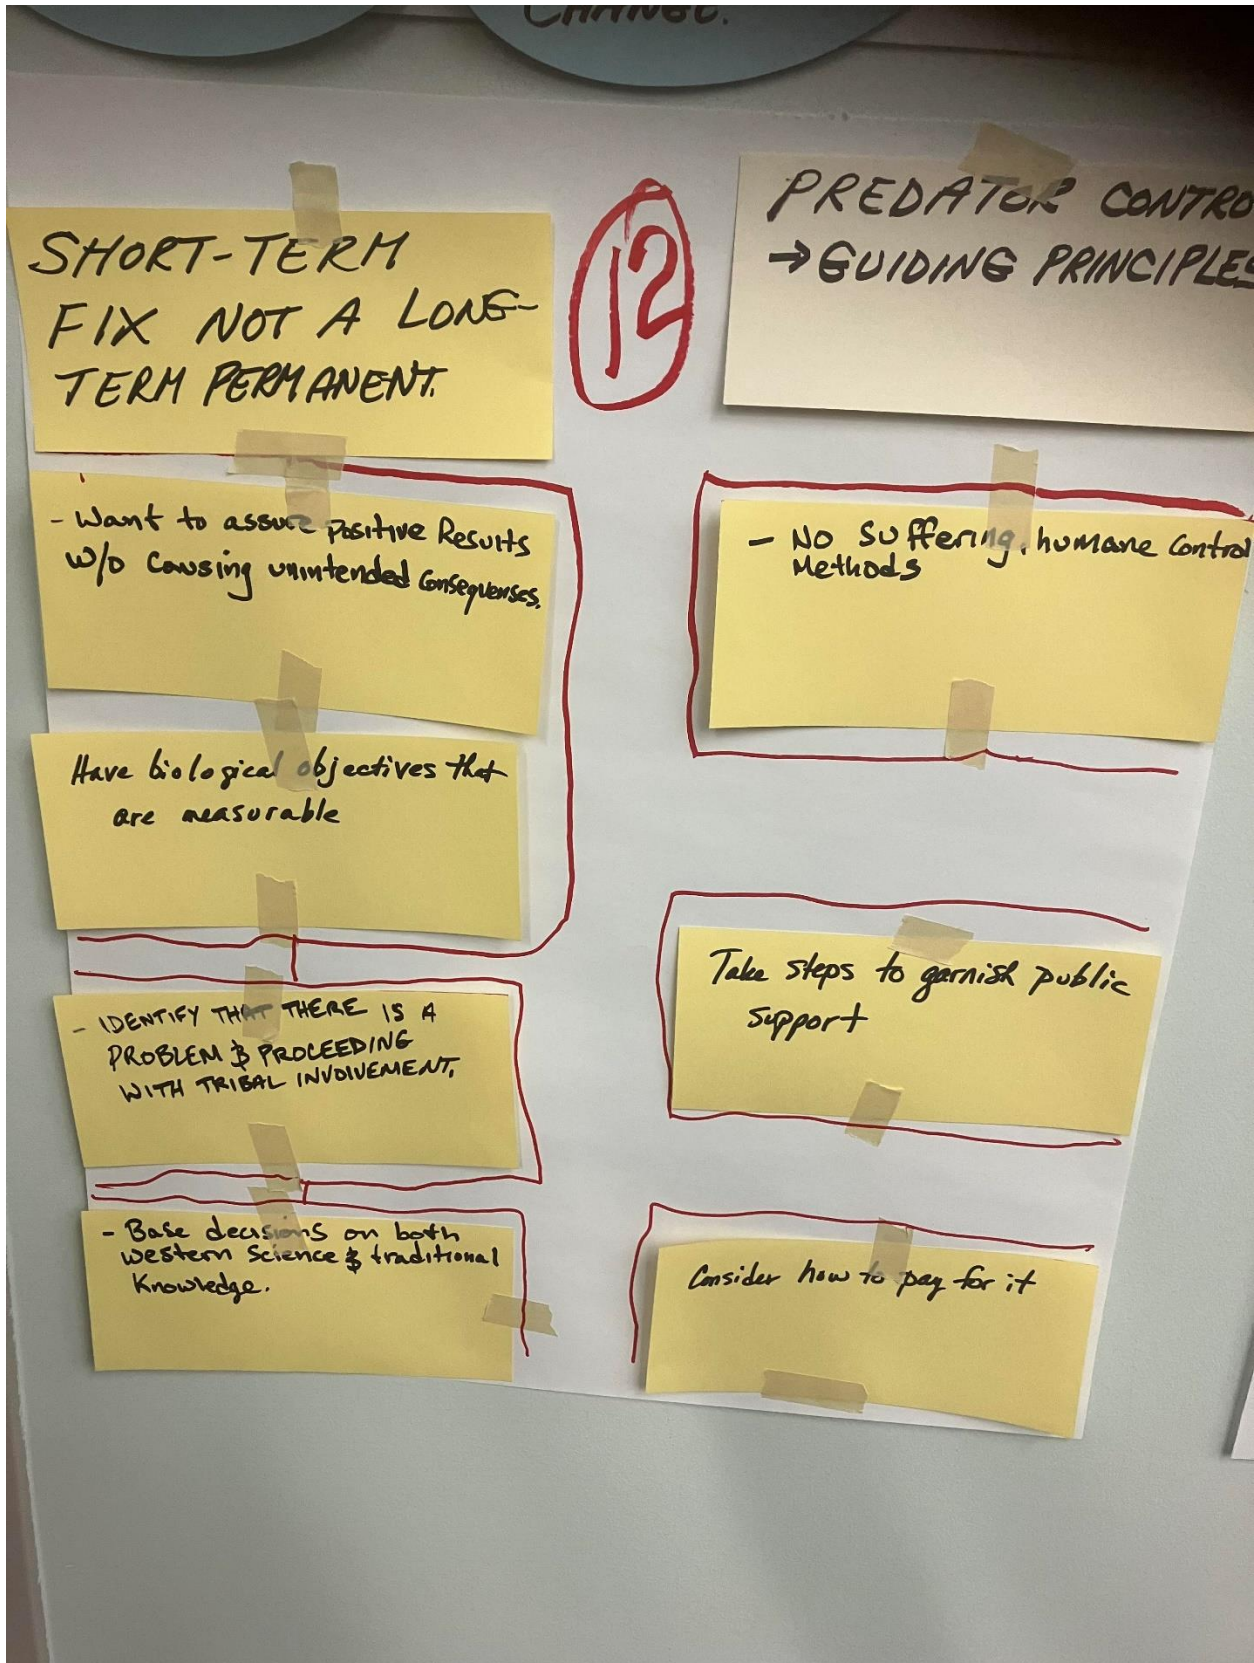 CHANGE.
SHORT-TERM
FIX NOT A LONG-
TERM PERMANENT.
12
PREDATOR CONTRO
→ GUIDING PRINCIPLES
- Want to assure positive Results
w/o Causing unintended Consequenses.
Have biological objectives that
are measurable
- IDENTIFY THAT THERE IS A
PROBLEM & PROCEEDING
WITH TRIBAL INVOLVEMENT.
- Base decisions on both
western Science & traditional
Knowledge.
- No Suffering, humane Control
Methods
Take steps to garnish public
support
Consider how to pay for it